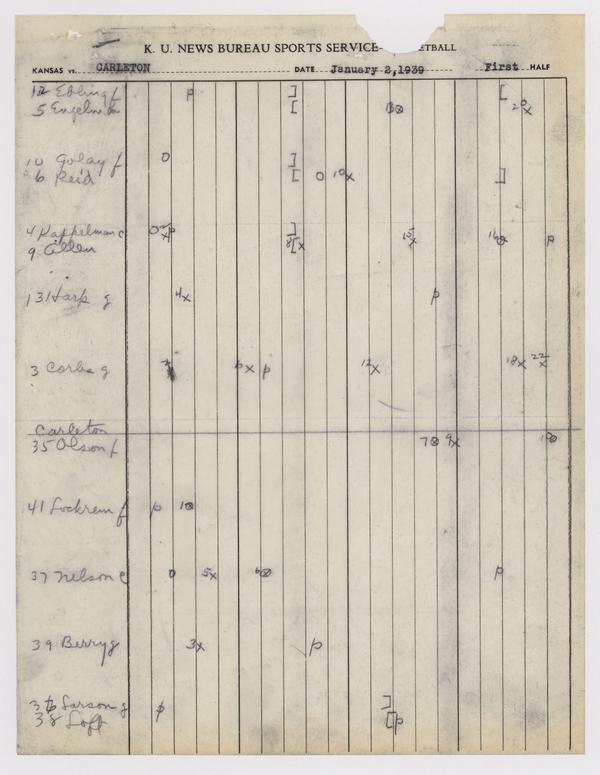 K. U. NEWS BUREAU SPORTS SERVICE- ETBALL
KANSAS vs. CARLETON DATE January 2, 1939 First HALF
12 Ebling f p ] [
5 Engel [ ⊗ 20x
10 Golay f 0 ]
6 Reid [ 0 10x ]
4 Kappelman c 0 p ] 15x 16⊗ p
9 Allen 8[x
13 Harp g 4x p
3 Corlis g 6x p 12x 18x 22x
Carleton
35 Olson f 7⊗ 9x 10⊗
41 Lockrem f p 1⊗
37 Nelson c 0 5x 6⊗ p
39 Berry g 3x p
36 Larson g p ]
38 Loff [p